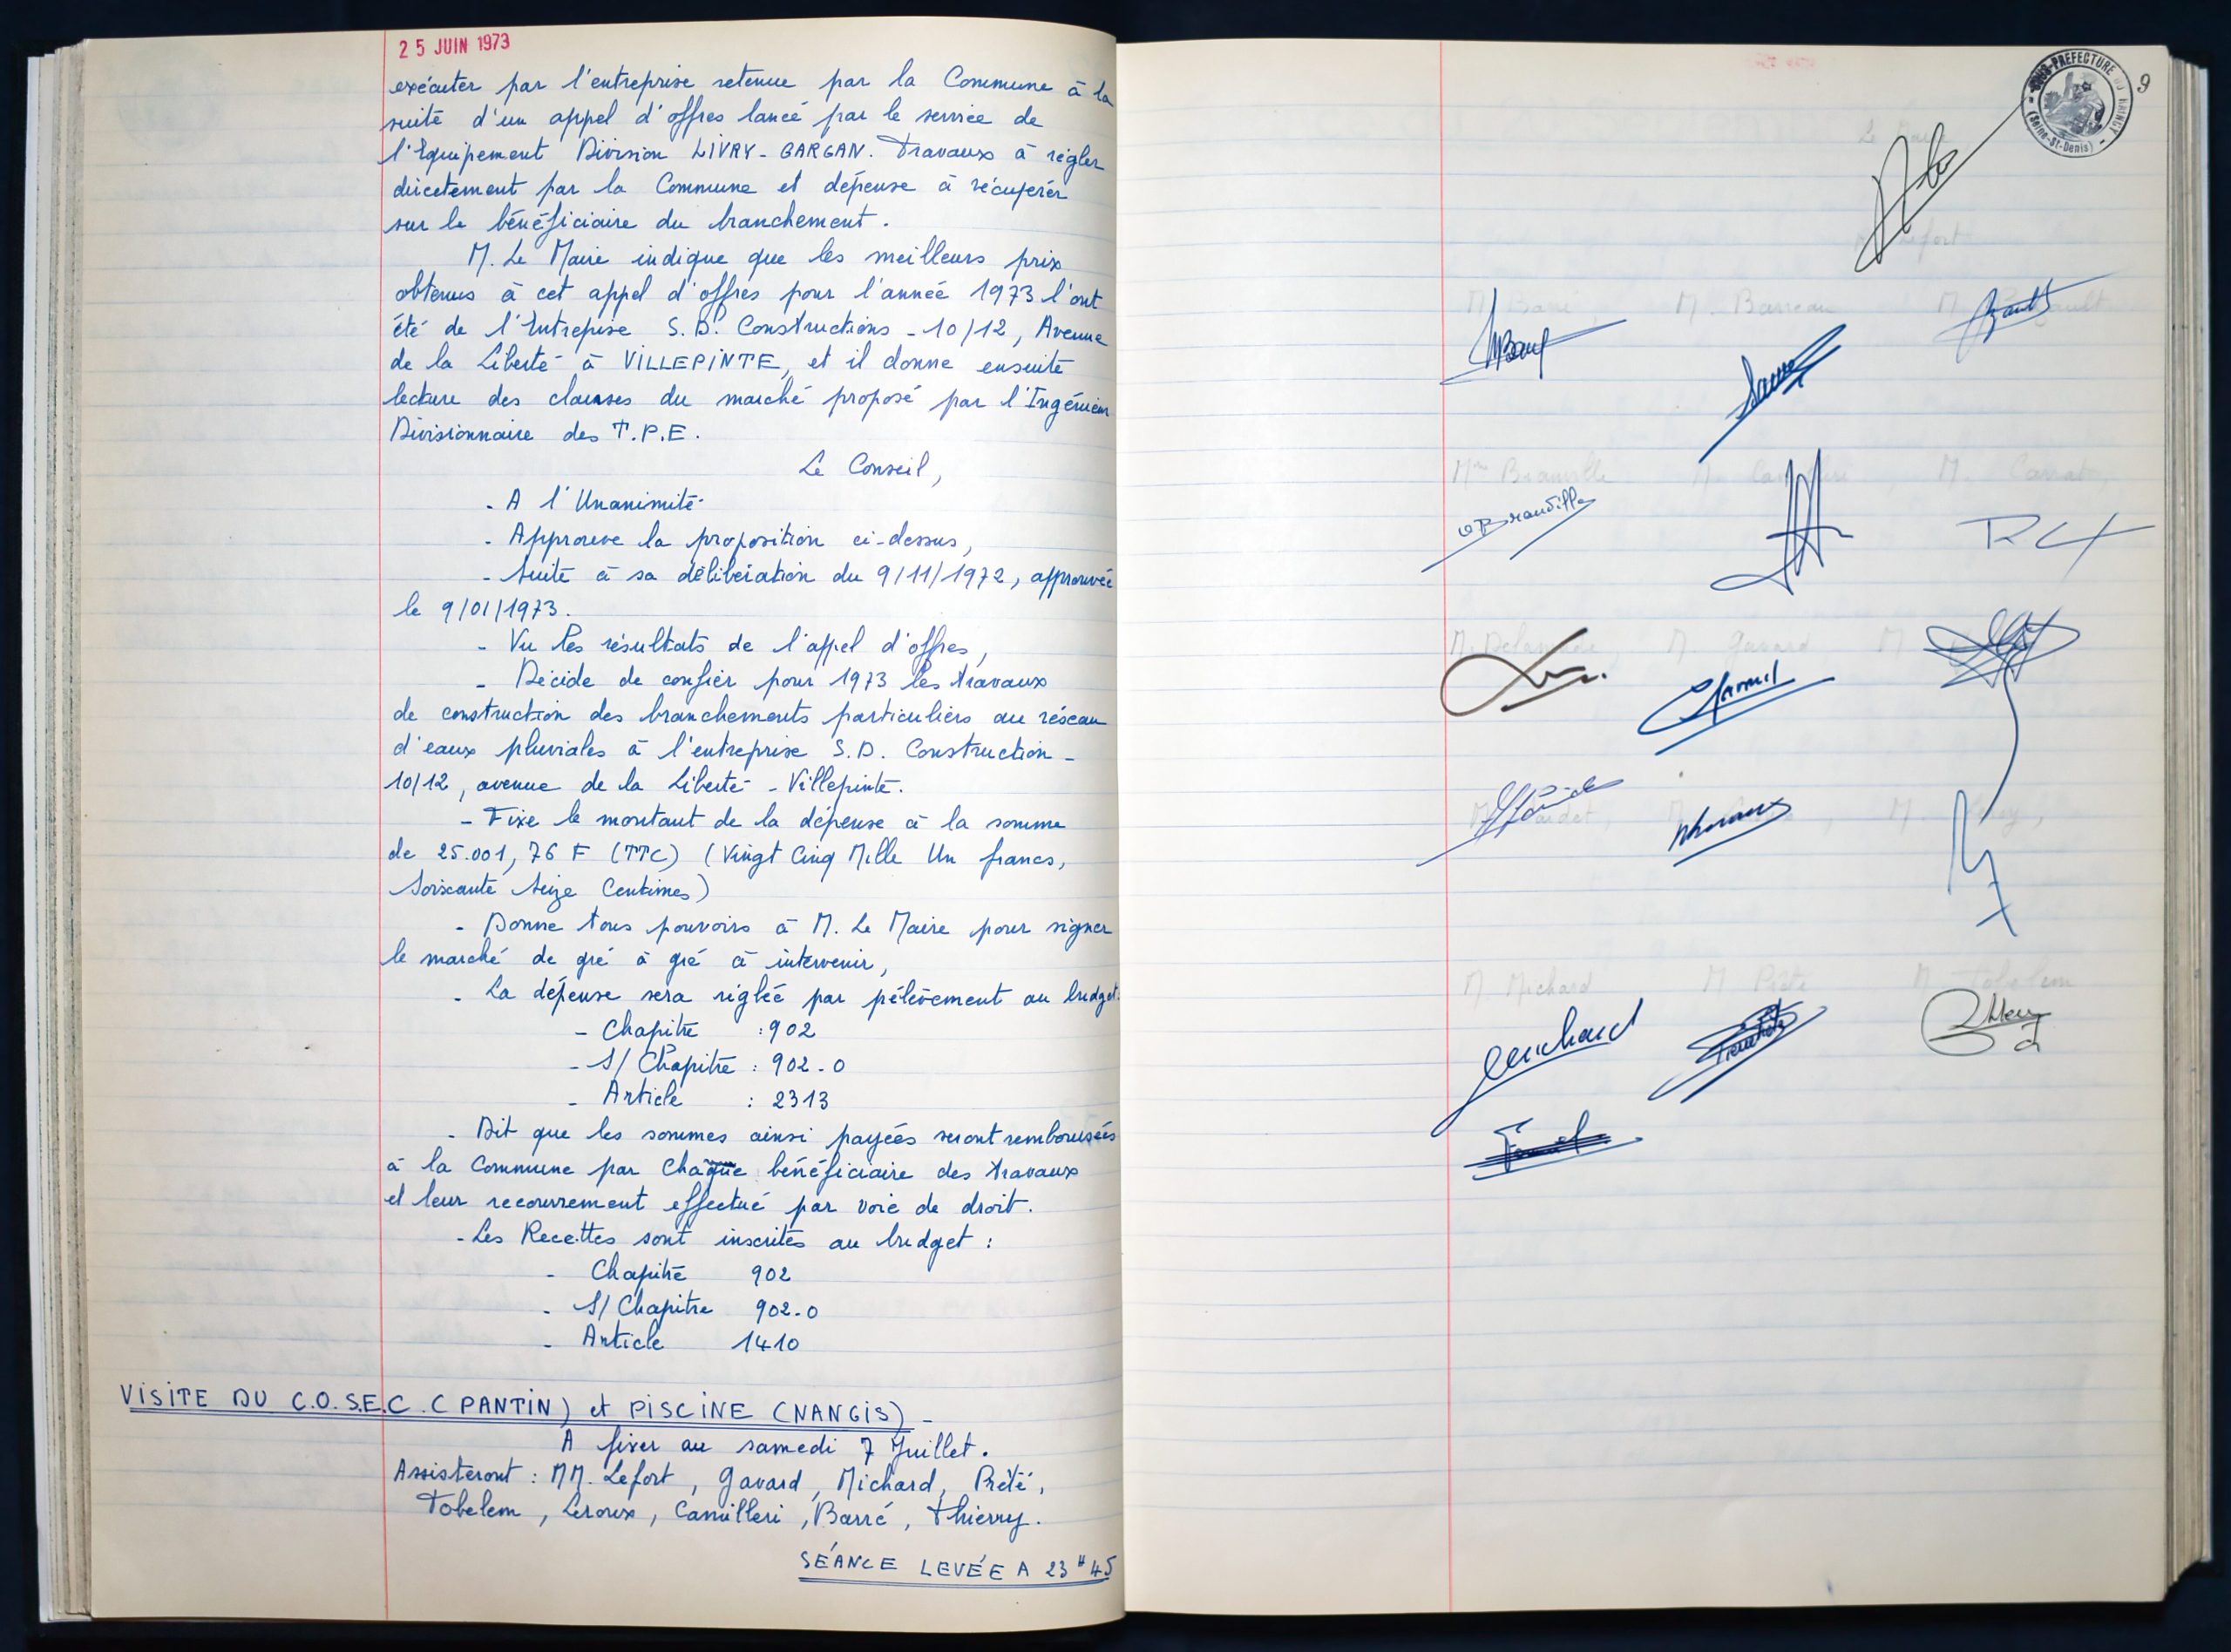 25 JUIN 1973
exécuter par l'entreprise retenue par la Commune à la
suite d'un appel d'offres lancé par le service de
l'Equipement Division LIVRY-GARGAN. Travaux à régler
directement par la Commune et dépense à récupérer
sur le bénéficiaire du branchement.
M. Le Maire indique que les meilleurs prix
obtenus à cet appel d'offres pour l'année 1973 l'ont
été de l'Entreprise S.D. Constructions - 10/12, Avenue
de la Liberté à VILLEPINTE, et il donne ensuite
lecture des clauses du marché proposé par l'Ingénieur
Divisionnaire des T.P.E.
Le Conseil,
- A l'Unanimité
- Approuve la proposition ci-dessus,
- Suite à sa délibération du 9/11/1972, approuvée
le 9/01/1973.
- Vu les résultats de l'appel d'offres,
- Décide de confier pour 1973 les travaux
de construction des branchements particuliers au réseau
d'eaux pluviales à l'entreprise S.D. Construction -
10/12, avenue de la Liberté - Villepinte.
- Fixe le montant de la dépense à la somme
de 25.001,76 F (TTC) (Vingt Cinq Mille Un francs,
Soixante Seize Centimes)
- Donne tous pouvoirs à M. Le Maire pour signer
le marché de gré à gré à intervenir,
- La dépense sera réglée par pélèvement au budget:
- Chapitre : 902
- S/Chapitre : 902-0
- Article : 2313
- Dit que les sommes ainsi payées seront remboursées
à la Commune par Chaque bénéficiaire des travaux
et leur recouvrement effectué par voie de droit.
- Les Recettes sont inscrites au budget :
- Chapitre 902
- S/Chapitre 902-0
- Article 1410
VISITE DU C.O.S.E.C. (PANTIN) et PISCINE (NANGIS) -
A fixer au samedi 7 Juillet.
Assisteront : MM. Lefort, Gavard, Michard, Prété,
Tobelem, Leroux, Camilleri, Barré, Thierry.
SÉANCE LEVÉE A 23H45
9
SOUS-PREFECTURE DU RAINCY
(Seine-St-Denis)